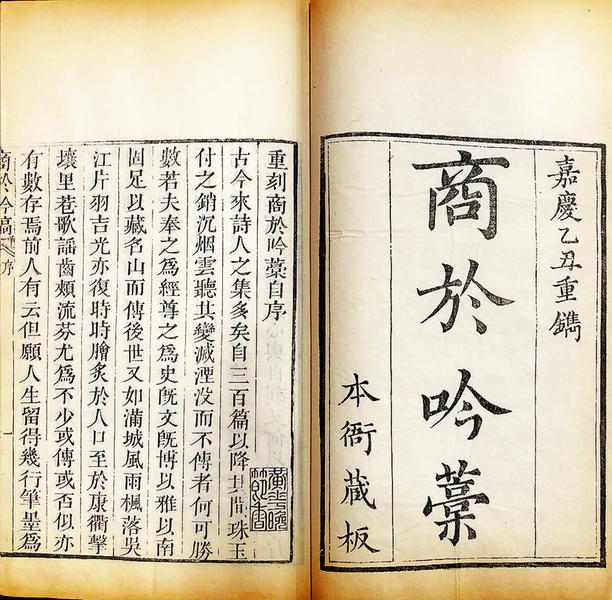 嘉慶乙丑重鐫
商於吟藁
本衙蔵板
重刻商於吟藁自序
古今來詩人之集多矣自三百篇以降其間珠玉
付之銷沉烟雲聽其變滅湮沒而不傳者何可勝
數若夫奉之爲經尊之爲史旣文旣博以雅以南
固足以藏名山而傳後世又如滿城風雨楓落吳
江片羽吉光亦復時時膾炙於人口至於康衢擊
壤里巷歌謡齒頰流芬尤爲不少或傳或否似亦
有數存焉前人有云但願人生留得幾行筆墨爲
商於吟稿 序 一